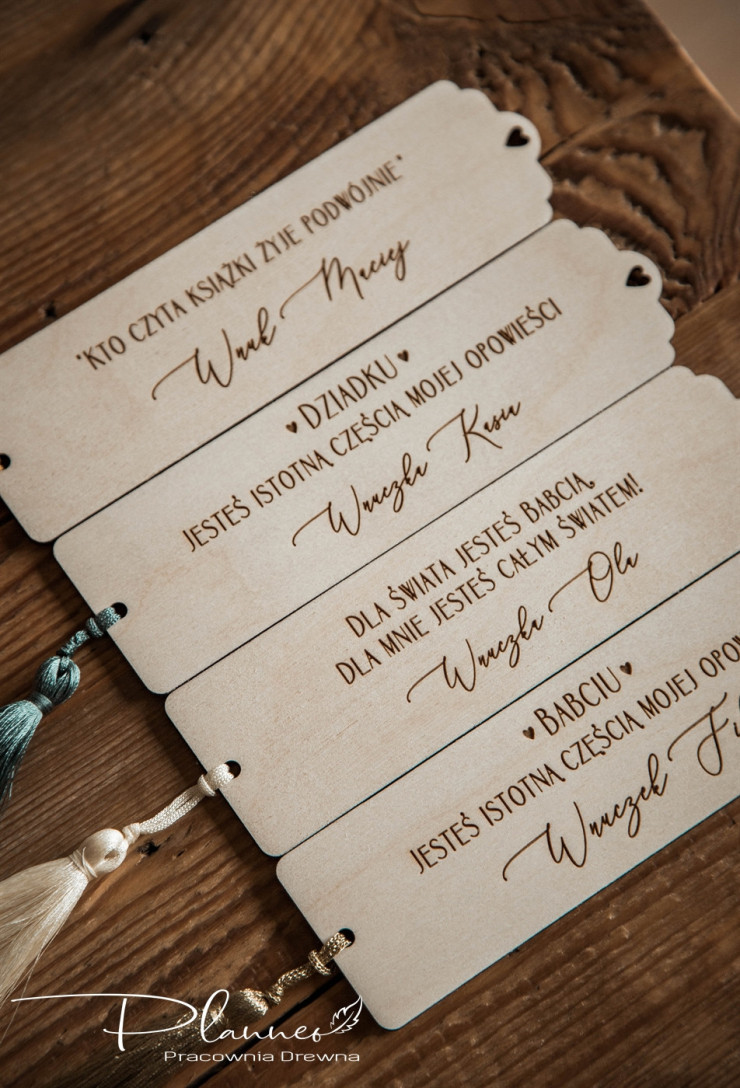 "KTO CZYTA KSIĄŻKI ŻYJE PODWÓJNIE"
Wnuk Maciej
DZIADKU
JESTEŚ ISTOTNĄ CZĘŚCIĄ MOJEJ OPOWIEŚCI
Wnuczka Kasia
DLA ŚWIATA JESTEŚ BABCIĄ,
DLA MNIE JESTEŚ CAŁYM ŚWIATEM!
Wnuczka Ola
BABCIU
JESTEŚ ISTOTNĄ CZĘŚCIĄ MOJEJ
Wnuczek
Planneo
Pracownia Drewna